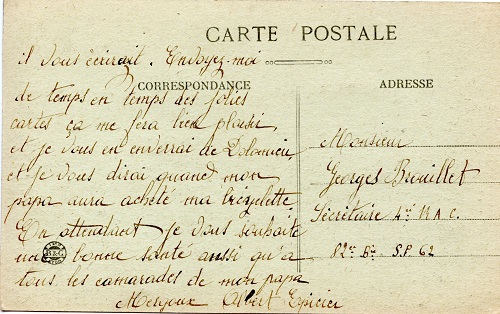 CARTE POSTALE
CORRESPONDANCE
ADRESSE
il vous écrirait. Envoyez-moi
de temps en temps des jolies
cartes ça me fera bien plaisir,
et je vous en enverrai de Dolomieu,
et je vous dirai quand mon
papa aura acheté ma bicyclette
En attendant je vous souhaite
une bonne santé aussi qu'à
tous les camarades de mon papa
Albert Epicier
Monsieur
Georges Brouillet
Secrétaire 4e R A C.
82e Bie S.P. 62
B&G